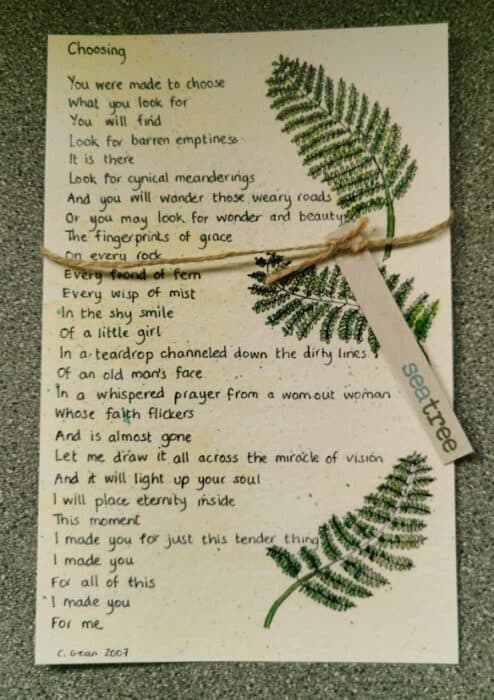 Choosing
You were made to choose
What you look for
You will find
Look for barren emptiness
It is there
Look for cynical meanderings
And you will wander those weary roads
Or you may look for wonder and beauty
The fingerprints of grace
On every rock
Every frond of fern
Every wisp of mist
In the shy smile
Of a little girl
In a teardrop channeled down the dirty lines
Of an old man's face
In a whispered prayer from a wornout woman
Whose faith flickers
And is almost gone
Let me draw it all across the miracle of vision
And it will light up your soul
I will place eternity inside
This moment
I made you for just this tender thing
I made you
For all of this
I made you
For me
C. Goan 2007
seatree